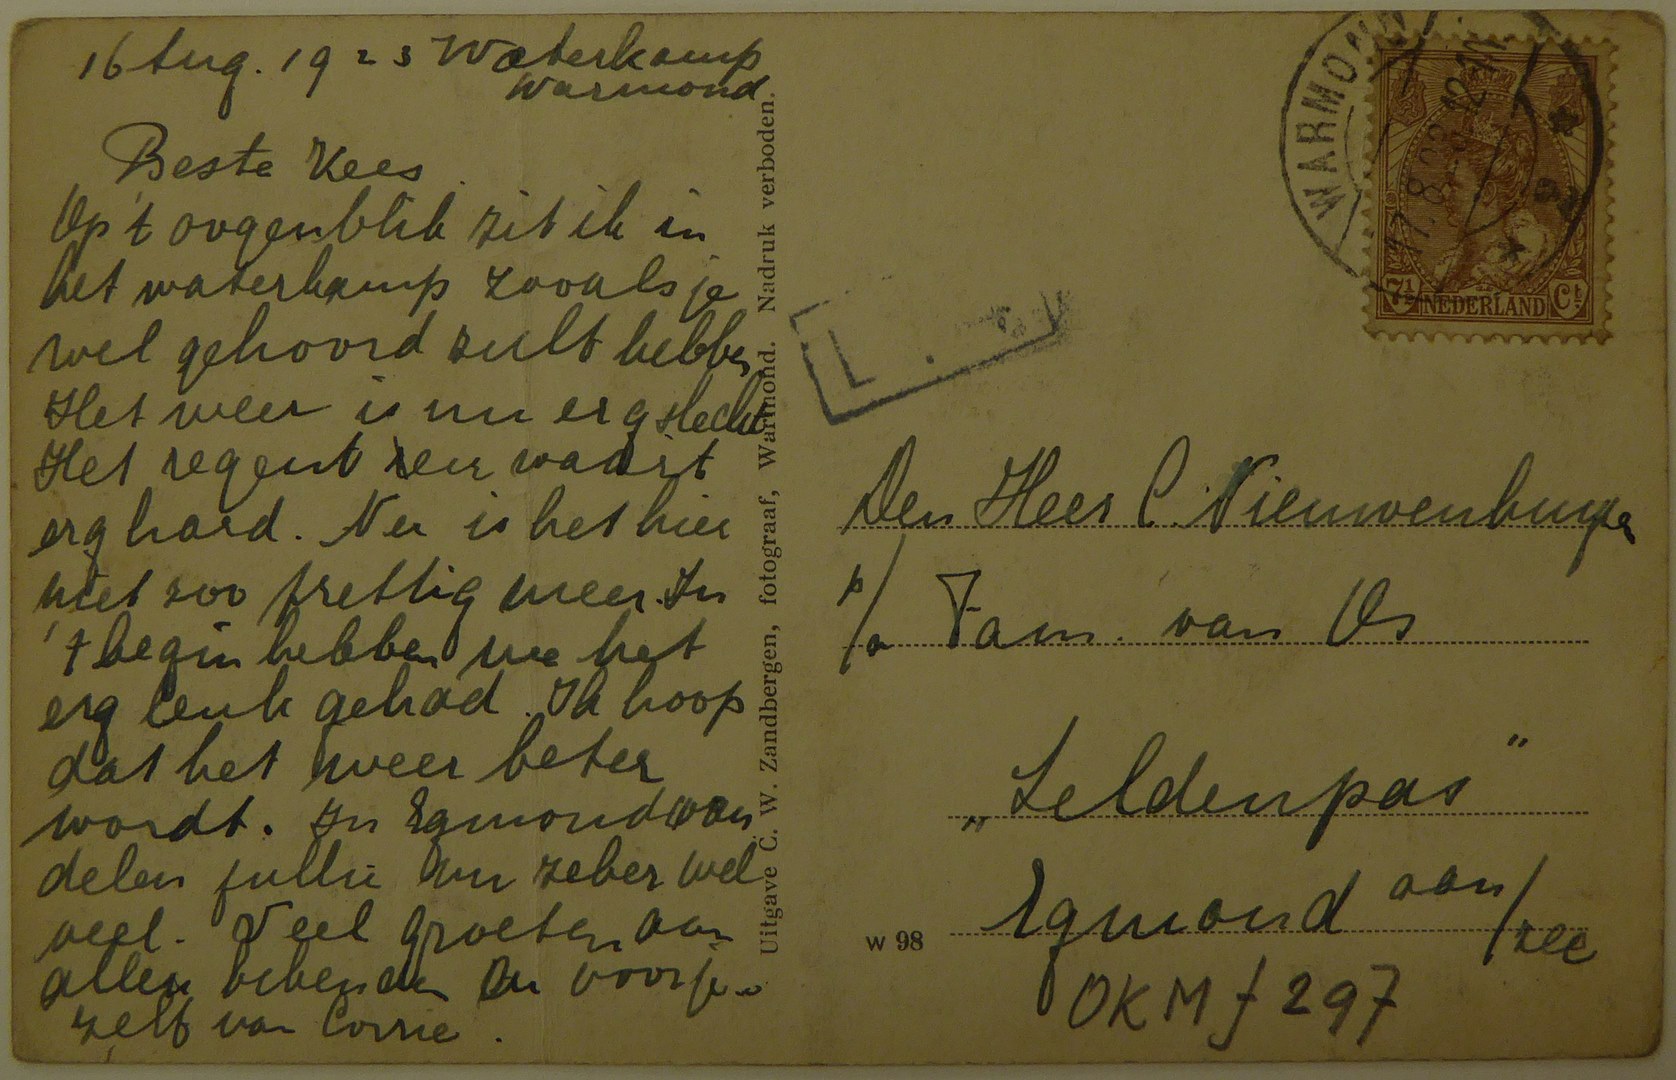 16 Aug. 1923 Waterkamp
Warmond.
Beste Kees.
Op 't oogenblik zit ik in
het waterkamp zooals je
wel gehoord zult hebben
Het weer is nu erg slecht
Het regent en waait
erg hard. Nu is het hier
niet zoo prettig meer. In
't begin hebben we het
erg leuk gehad. Ik hoop
dat het weer beter
wordt. In Egmond wan
delen jullie zeker wel
veel. Veel groeten aan
allen bekenden en voor je
zelf van Corrie.
Uitgave C. W. Zandbergen, fotograaf, Warmond. Nadruk verboden.
WARMOND
17.8.23
7½ NEDERLAND Ct.
L
Den Heer C. Nieuwenhuyzen
p/a Fam. van Os
„Zeldenpas”
w 98
Egmond aan/zee
OKM f 297